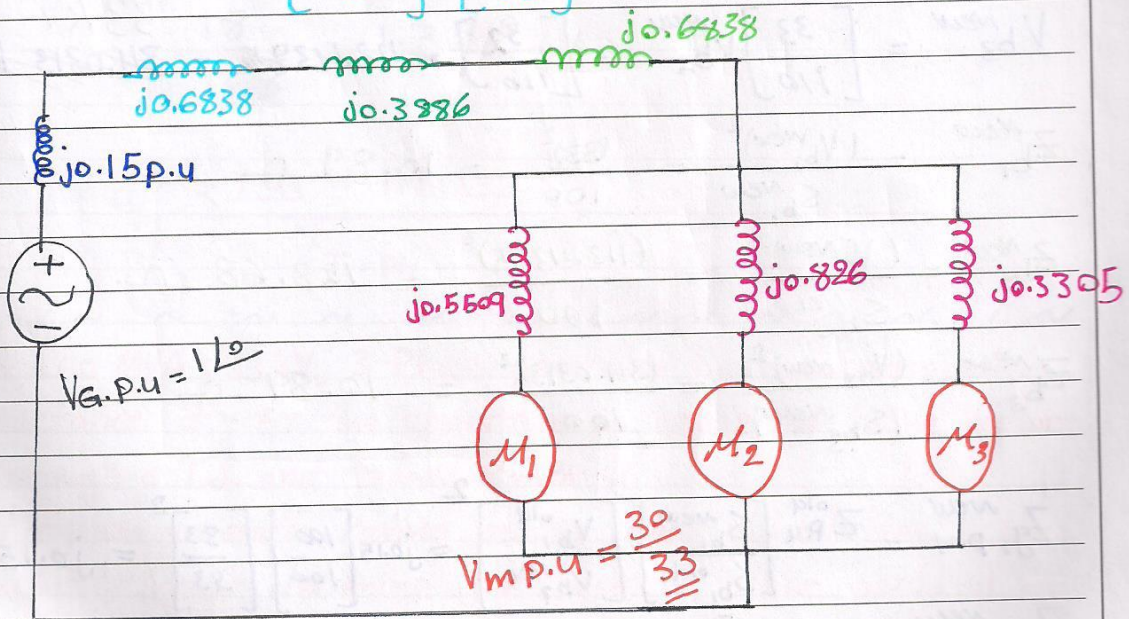 j0.6838
j0.6838
j0.3886
j0.15p.u
j0.5509
j0.826
j0.3305
+
~
−
VG.p.u = 1∠0
M1
M2
M3
Vm p.u = 30/33